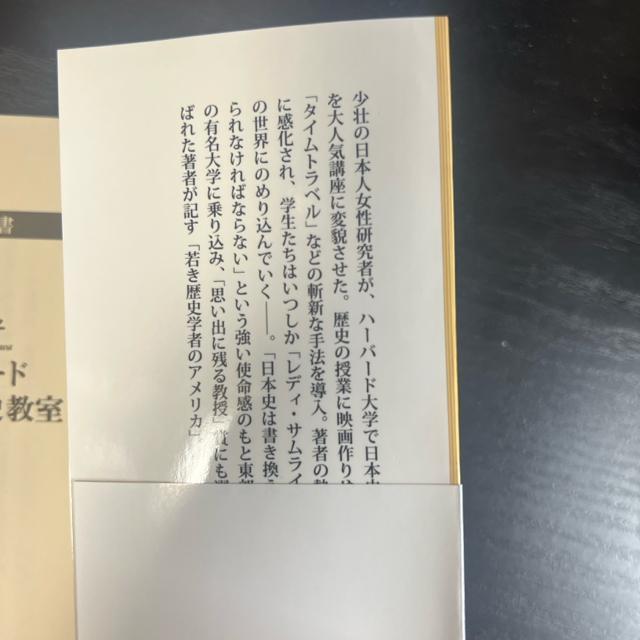 少壮の日本人女性研究者が、ハーバード大学で日本
を大人気講座に変貌させた。歴史の授業に映画作り
「タイムトラベル」などの斬新な手法を導入。著者の
に感化され、学生たちはいつしか「レディ・サムライ
の世界にのめり込んでいく――。「日本史は書き換
られなければならない」という強い使命感のもと東
の有名大学に乗り込み、「思い出に残る教授」賞にも
ばれた著者が記す「若き歴史学者のアメリカ」
書
ード
教室